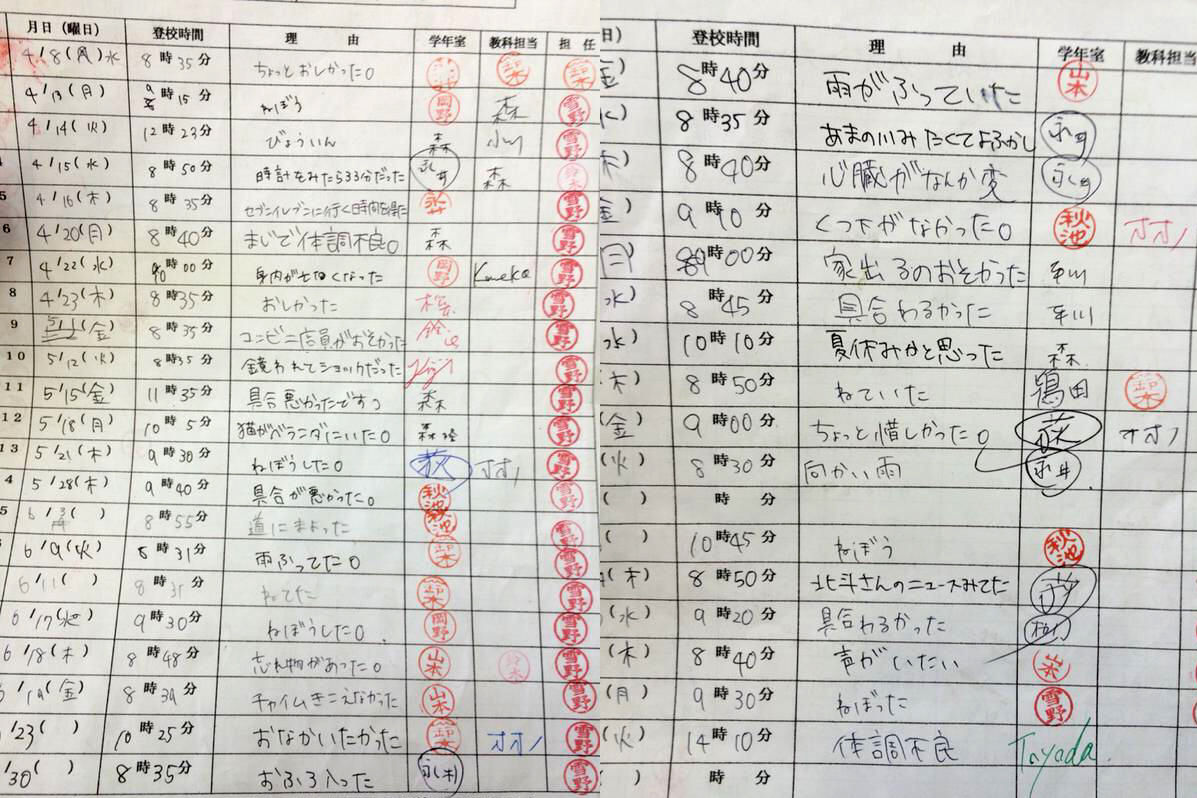 月日（曜日） 登校時間 理 由 学年室 教科担当 担 任
4/8(月)水 8時35分 ちょっとおしかった。
4/13(月) 9時15分 ねぼう 岡野 森 雪野
4/14(火) 12時23分 びょういん 森 小川 雪野
4/15(水) 8時50分 時計をみたら33分だった 永井 森
5 4/16(木) 8時35分 セブンイレブンに行く時間を得た 永井 雪野
6 4/20(月) 8時40分 まじで体調不良。 森 雪野
7 4/22(水) 00分 身内が亡くなった 岡野 Kaneko 雪野
8 4/23(木) 8時35分 おしかった 雪野
9 (金) 8時35分 コンビニ店員がおそかった 雪野
10 5/12(火) 8時35分 鏡われてショックだった 雪野
11 5/15(金) 11時35分 具合悪かったですっ 森 雪野
12 5/18(月) 10時5分 猫がベランダにいた。 雪野
13 5/21(木) 9時30分 ねぼうした。 荻 オオノ 雪野
4 5/28(木) 9時40分 具合が悪かった。 秋池 雪野
5 6/3( ) 8時55分 道にまよった 秋池 雪野
6/9(火) 8時31分 雨ふってた。 鈴木 雪野
6/11( ) 8時35分 ねてた 鈴木 雪野
6/17(水) 9時30分 ねぼうした。 岡野 雪野
6/18(木) 8時48分 忘れ物があった。 山本 鈴木 雪野
6/19(金) 8時39分 チャイムきこえなかった 山本 雪野
/23( ) 10時25分 おなかいたかった 鈴木 オオノ 雪野
/30( ) 8時35分 おふろ入った 雪野
日） 登校時間 理 由 学年室 教科担当
金) 8時40分 雨がふっていた 山本
水) 8時35分 あまの川みたくてよふかし 永井
木) 8時40分 心臓がなんか変 永井
金) 9時10分 くつ下がなかった。 秋池 オオノ
月) 9時00分 家出るのおそかった
水) 8時45分 具合わるかった
水) 10時10分 夏休みかと思った 森
木) 8時50分 ねていた 鴇田 鈴木
(金) 9時00分 ちょっと惜しかった。 荻 オオノ
(火) 8時30分 向かい雨 永井
( ) 時 分
) 10時45分 ねぼう 秋池
(木) 8時50分 北斗さんのニュースみてた
(水) 9時20分 具合わるかった
(木) 8時40分 声がいたい 山本
(月) 9時30分 ねぼった 雪野
(火) 14時10分 体調不良 Toyoda
( ) 時 分